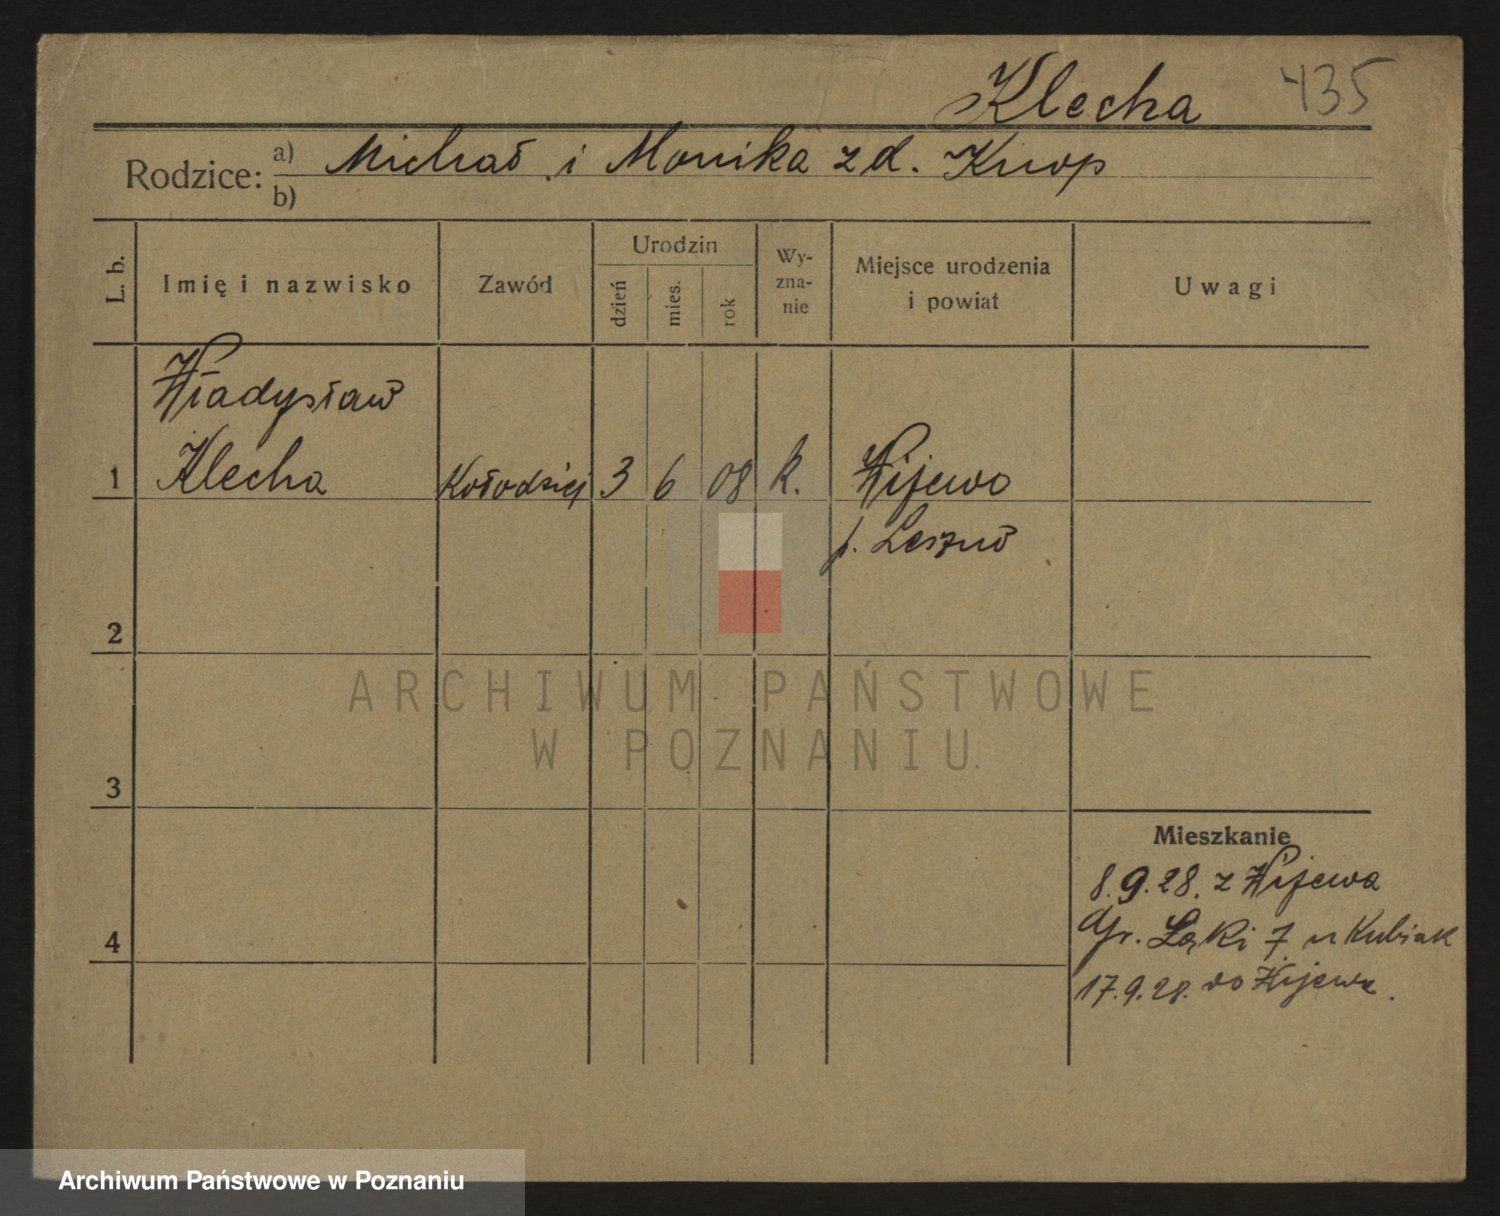 Klecha 435
Rodzice: a) Michał i Monika z d. Knop
b)
L. b. Imię i nazwisko Zawód Urodzin dzień mies. rok Wy-zna-nie Miejsce urodzenia i powiat Uwagi
Władysław
1 Klecha Kołodziej 3 6 08 k. Wijewo
p. Leszno
2
ARCHIWUM PAŃSTWOWE
W POZNANIU
3
Mieszkanie
8.9.28. z Wijewa
4 Gr. Łąki 7 u Kubiak
17.9.28. do Wijewa.
Archiwum Państwowe w Poznaniu